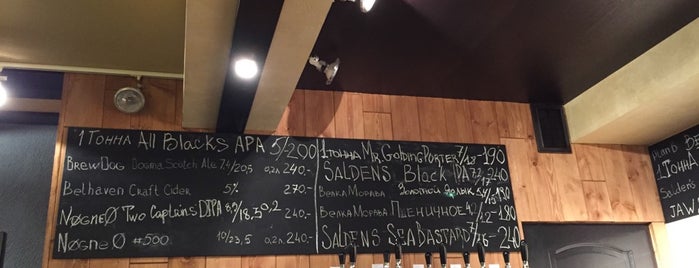 1 ТОННА All Blacks APA 5/-200
BREWDOG Dogma Scotch Ale 7.4/20,5 0,2л 240.-
Belhaven Craft Cider 5% 270.-
NØGNE Ø Two Captains DIPA 8,5/18,5 0,2 240-
NØGNE Ø #500 10/23,5 0,2л. 240-
1 ТОННА Mr. Golding PORTER 7/17-190
SALDENS Black IPA 7,2 17 240
ВЕЛКА МОРАВА Золотой ярлык
ВЕЛКА МОРАВА ПШЕНИЧНОЕ 12-190
SALDENS SEA BASTARD 7/16-240
1 ТОНН
Salden's
JAW